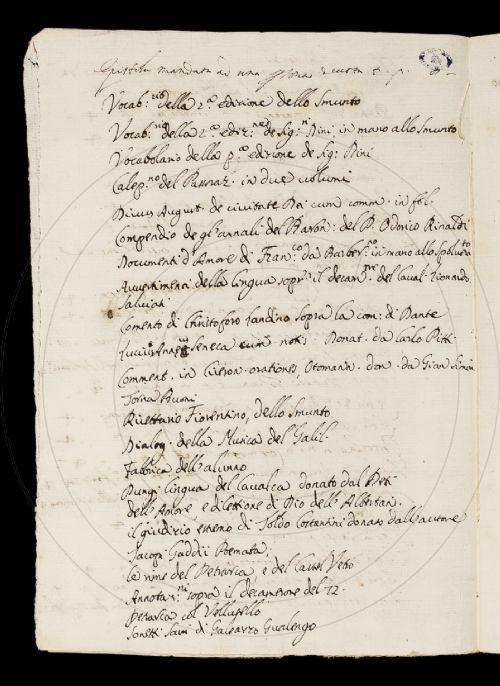 Vocab:rio della 2a edizione dello Smunto
Vocab:rio della 2:a ediz:ne de Sig:ri Dini, in mano allo Smunto
Vocabolario della p:a edizione de Sig: Dini
Calep:no del Passerat. in due volumi
Divus August. de civitate Dei cum comm. in fol.
Compendio de gl'annali del Baron: del P. Odorico Rinaldi
Documenti d'Amore di Fran:co da Barber:no in mano allo
Avvertimenti della lingua sopra il decam:ne del Caval. Lionardo
Salviati
Comento di Christoforo Landino sopra la com: di Dante
Lucius Anneus Seneca cum notis Donat. da Carlo Pitti
Comment. in Ciceron. orationes, Otomann. don. da Gian Simon
Tornabuoni
Ricettario Fiorentino, dello Smunto
Dialog. della Musica del Galil.
Fabbrica dell'alunno
Pungi lingua del Cavalca donato dal
dell'Amore, e dilettione di Dio dell'Albertan.
il giudizio estremo di Toldo Costantini donato dall'autore
Jacopi Gaddii Poemata
le rime del Petrarca, e del Casa
Annotaz:ni sopra il decamerone del 72.
Petrarca col Vellutello
Sonetti Sacri di Galeazzo Gualengo